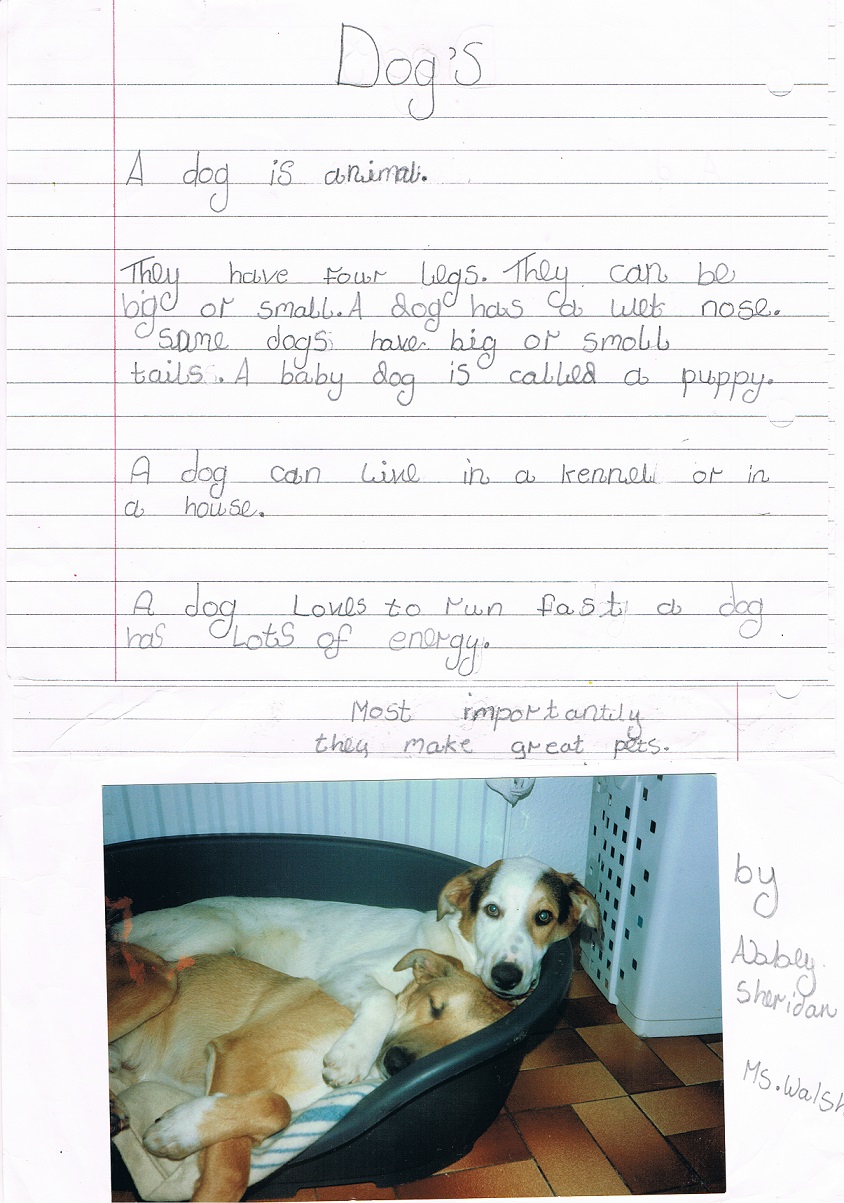 Dog's
A dog is animal.
They have four legs. They can be
big or small. A dog has a wet nose.
Some dogs have big or small
tails. A baby dog is called a puppy.
A dog can live in a kennel or in
a house.
A dog Loves to run fast a dog
has Lots of energy.
Most importantily
they make great pets.
by
Sheridan
Ms. Walsh